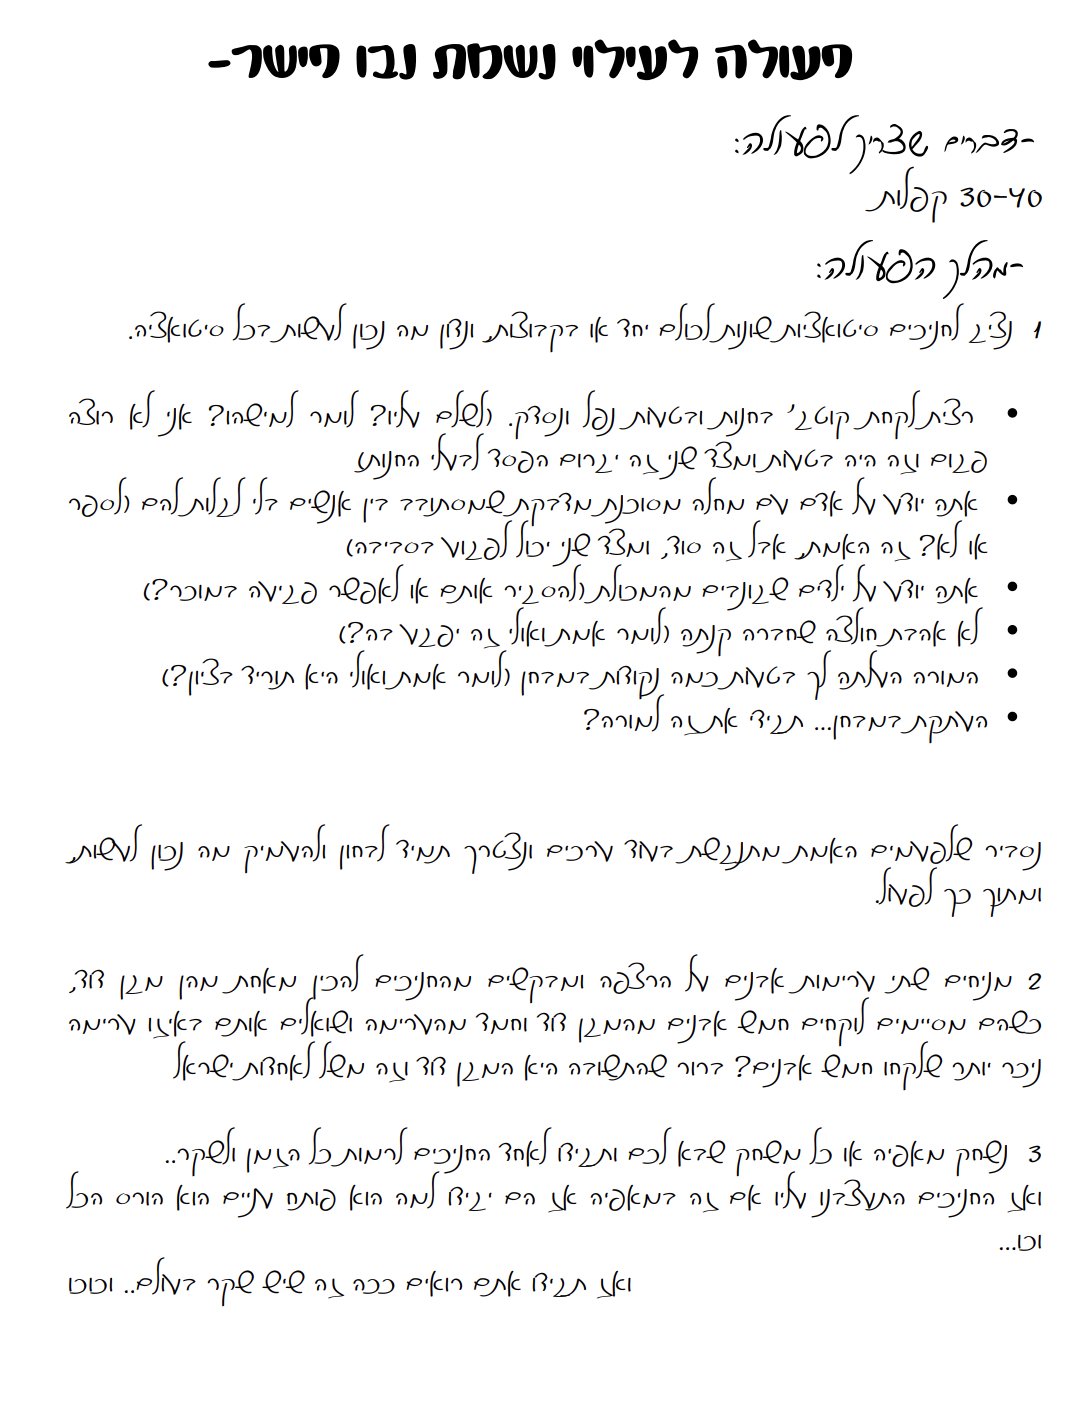 פעולה לעילוי נשמת נבו פישר-
-דברים שצריך לפעולה:
30-40 קפלות
-מהלך הפעולה:
1 נציג לחניכים סיטואציות שונות לכולם יחד או בקבוצות, ונדון מה נכון לעשות בכל סיטואציה.
• רצית לקחת קוטג' בחנות ובטעות נפל ונסדק. (לשלם עליו? לומר למישהו? אני לא רוצה
פגום וזה היה בטעות ומצד שני זה יגרום הפסד לבעלי החנות)
• אתה יודע על אדם עם מחלה מסוכנת מדבקת שמסתובב בין אנשים בלי לגלות להם (לספר
או לא? זה האמת, אבל זה סוד, ומצד שני יכול לפגוע בסביבה)
• אתה יודע על ילדים שגונבים מהמכולת (להסגיר אותם או לאפשר פגיעה במוכר?)
• לא אהבת חולצה שחברה קנתה (לומר אמת ואולי זה יפגע בה?)
• המורה העלתה לך בטעות כמה נקודות במבחן (לומר אמת ואולי היא תוריד בציון?)
• העתקת במבחן... תגידי את זה למורה?
נסביר שלפעמים האמת מתנגשת בעוד ערכים ונצטרך תמיד לבחון ולהעמיק מה נכון לעשות,
ומתוך כך לפעול.
2 מניחים שתי ערימות אבנים על הרצפה ומבקשים מהחניכים להכין מאחת מהן מגן דוד,
כשהם מסיימים לוקחים חמש אבנים מהמגן דוד וחמד מהערימה ושואלים אותם באיזו ערימה
ניכר יותר שלקחו חמש אבנים? ברור שהתשובה היא המגן דוד וזה משל לאחדות ישראל
3 נשחק מאפיה או כל משחק שבא לכם ותגידו לאחד החניכים לרמות כל הזמן ולשקר..
ואז החניכים התעצבנו עליו אם זה במאפיה אז הם יגידו למה הוא פותח עניים הוא הורס הכל
וכו...
ואז תגידו אתם רואים ככה זה שיש שקר בעולם.. וכוכו